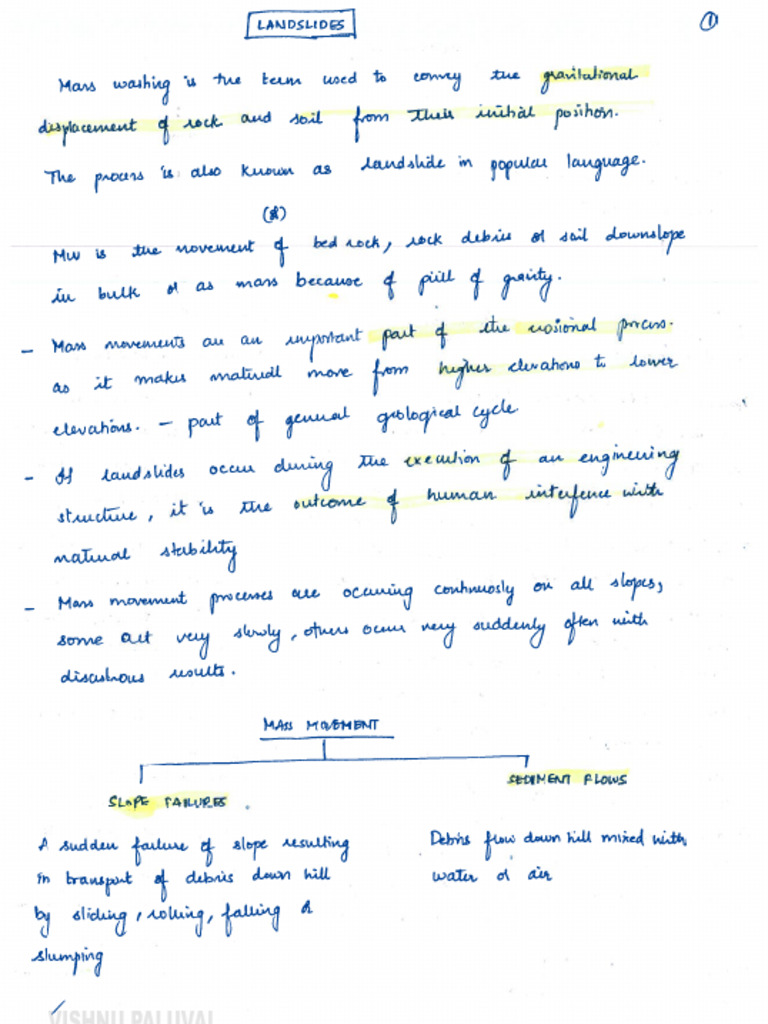 LANDSLIDES
1
Mass washing is the term used to convey the gravitational
displacement of rock and soil from their initial position.
The process is also known as landslide in popular language.
(or)
MW is the movement of bed rock, rock debris or soil downslope
in bulk or as mass because of pull of gravity.
- Mass movements are an important part of the erosional process.
as it makes material move from higher elevations to lower
elevations. - part of general geological cycle
- If landslides occur during the execution of an engineering
structure, it is the outcome of human interfence with
natural stability
- Mass movement processes are occuring continuosly on all slopes,
some act very slowly, others occur very suddenly often with
disastrous results.
MASS MOVEMENT
SEDIMENT FLOWS
SLOPE FAILURES
A sudden failure of slope resulting
in transport of debris down hill
by sliding, rolling, falling or
slumping
Debris flow down hill mixed with
water or air
VISHNU PALUVAI